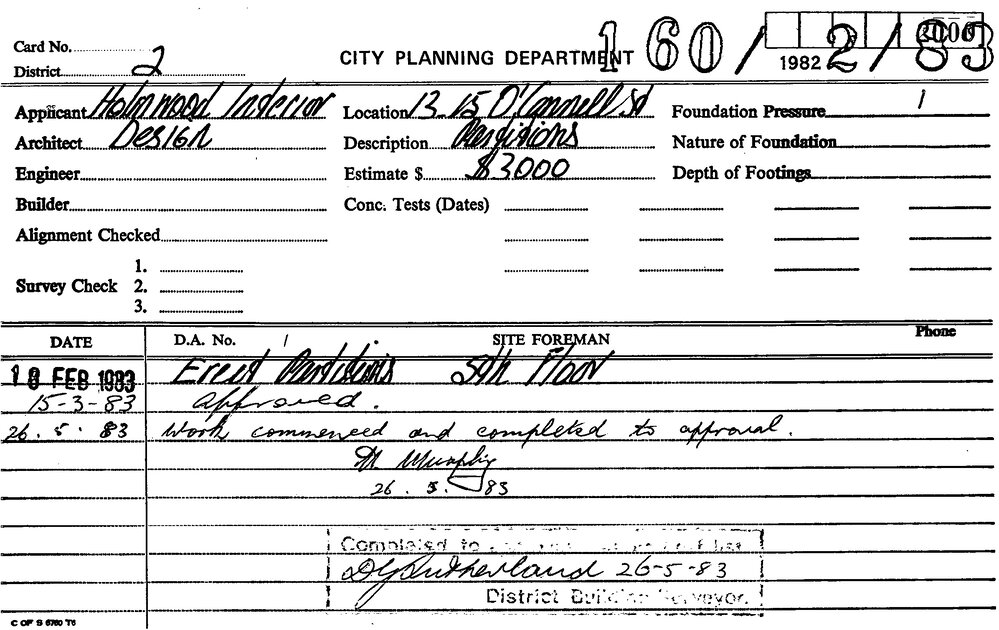 Card No.
District 2
CITY PLANNING DEPARTMENT
160/2/83
1982
Applicant Holmwood Interior
Architect Design
Engineer
Builder
Alignment Checked
Survey Check 1.
2.
3.
Location 13-15 O'Connell St
Description Partitions
Estimate $ $3000
Conc. Tests (Dates)
Foundation Pressure
Nature of Foundation
Depth of Footings
DATE D.A. No. SITE FOREMAN Phone
18 FEB 1983 Erect Partitions 5th Floor
15-3-83 Approved.
26.5.83 Work commenced and completed to approval.
M Murphy
26.5.83
Completed to
D G Sutherland 26-5-83
District Building Surveyor.
C OF S 6760 T6